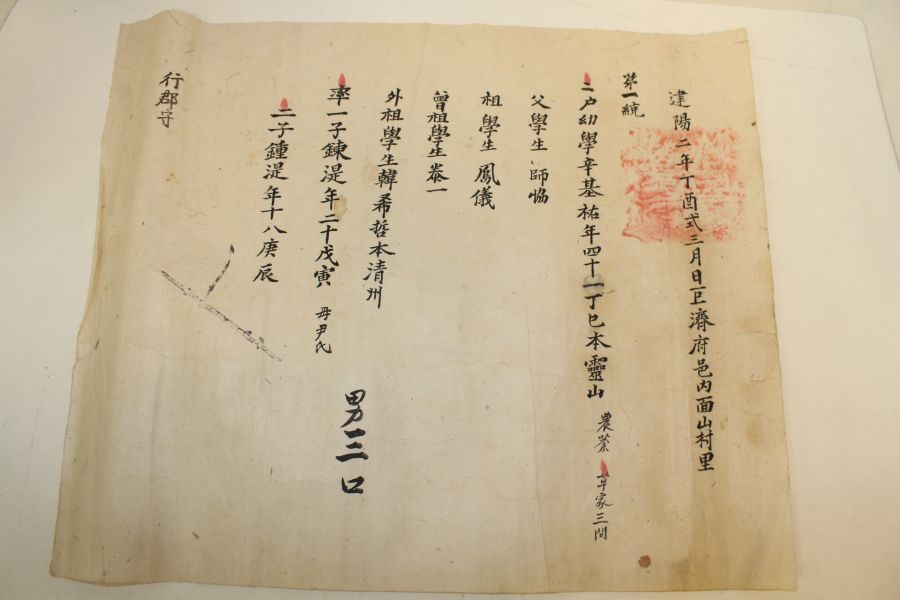 建陽二年丁酉式三月日巨濟府邑內面山村里
第一統
二戶幼學辛基祐年四十一丁巳本靈山 農業 草家三間
父學生 師恊
祖學生 鳳儀
曾祖學生 泰一
外祖學生韓希哲本清州
率一子鍊湜年二十戊寅 母尹氏
二子鍾湜年十八庚辰
男三口
行郡守